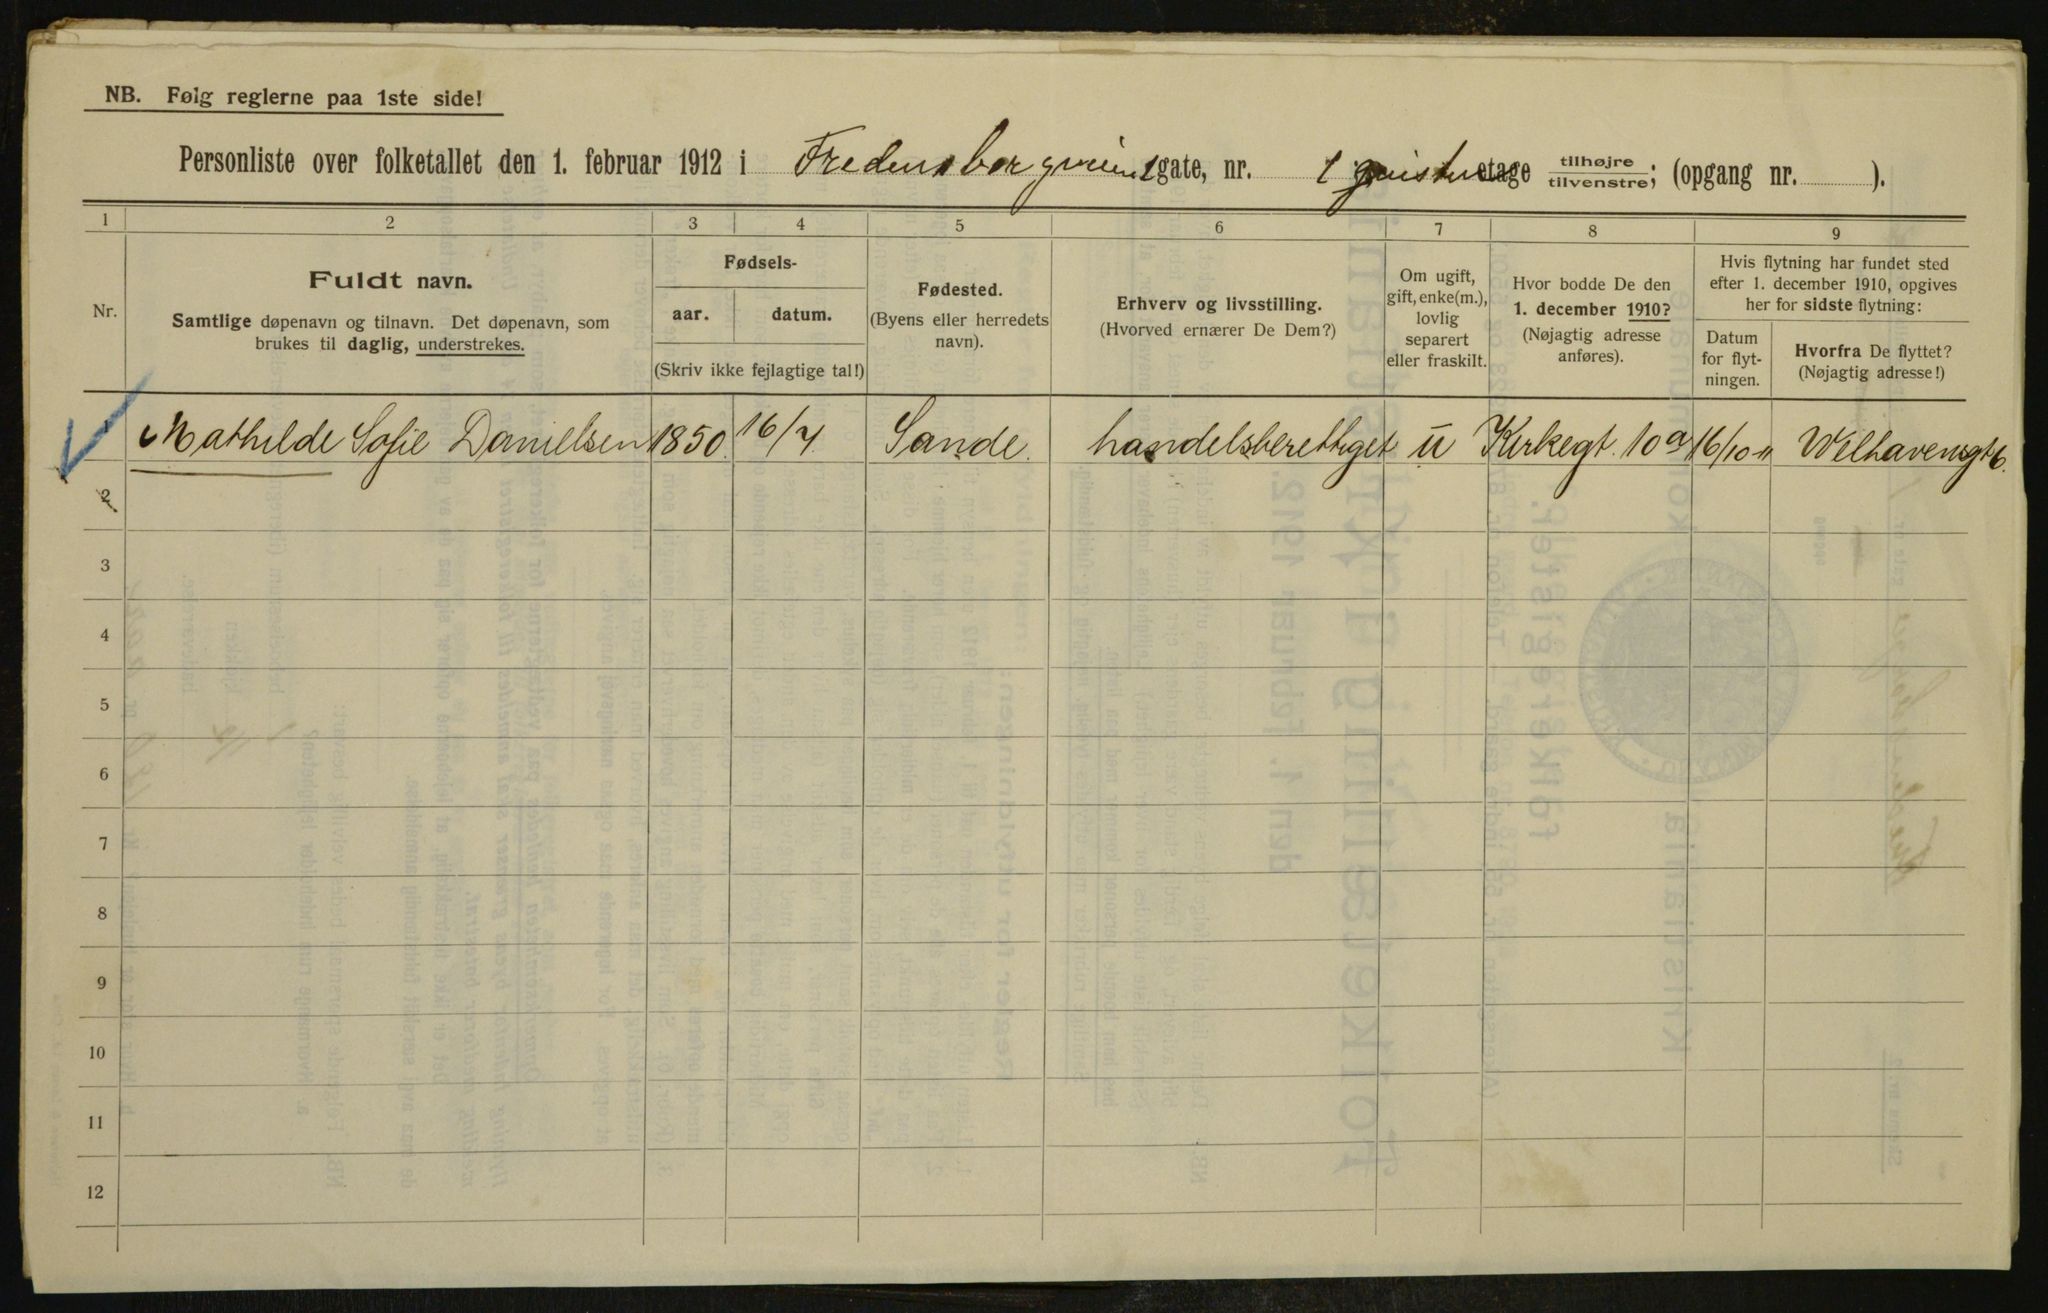 NB. Følg reglerne paa 1ste side!
Personliste over folketallet den 1. februar 1912 i Fredensborgveien gate, nr. 1 etage tilhøjre tilvenstre; (opgang nr. ).
1 2 3 4 5 6 7 8 9
Nr.
Fuldt navn.
Samtlige døpenavn og tilnavn. Det døpenavn, som
brukes til daglig, understrekes.
Fødsels-
aar. datum.
(Skriv ikke fejlagtige tal!)
Fødested.
(Byens eller herredets
navn).
Erhverv og livsstilling.
(Hvorved ernærer De Dem?)
Om ugift,
gift, enke(m.),
lovlig
separert
eller fraskilt.
Hvor bodde De den
1. december 1910?
(Nøjagtig adresse
anføres).
Hvis flytning har fundet sted
efter 1. december 1910, opgives
her for sidste flytning:
Datum
for flyt-
ningen.
Hvorfra De flyttet?
(Nøjagtig adresse!)
Mathilde Sofie Danielsen 1850 16/7 Sande. handelsberettiget u Kirkegt. 10a 16/10-11 Welhavensgt 6.
2
3
4
5
6
7
8
9
10
11
12